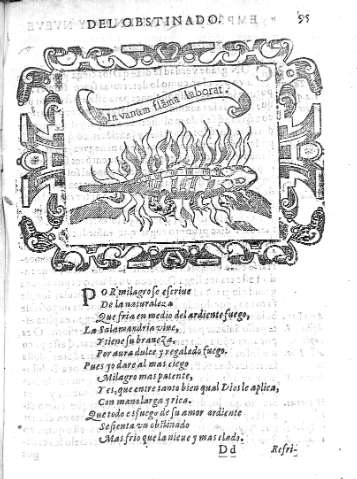 DEL OBSTINADO. 95
In vanum flãma laborat.
POR milagro se escriue
De la naturaleza
Que fria en medio del ardiente fuego,
La Salamandria viue,
Y tiene su braueza,
Por aura dulce y regalado fuego.
Pues yo dare al mas ciego
Milagro mas patente,
Y es, que entre tanto bien qual Dios le aplica,
Con mano larga y rica.
Que todo es fuego de su amor ardiente
Se sienta vn obstinado
Mas frio que la nieue y mas elado.
Dd Refri-